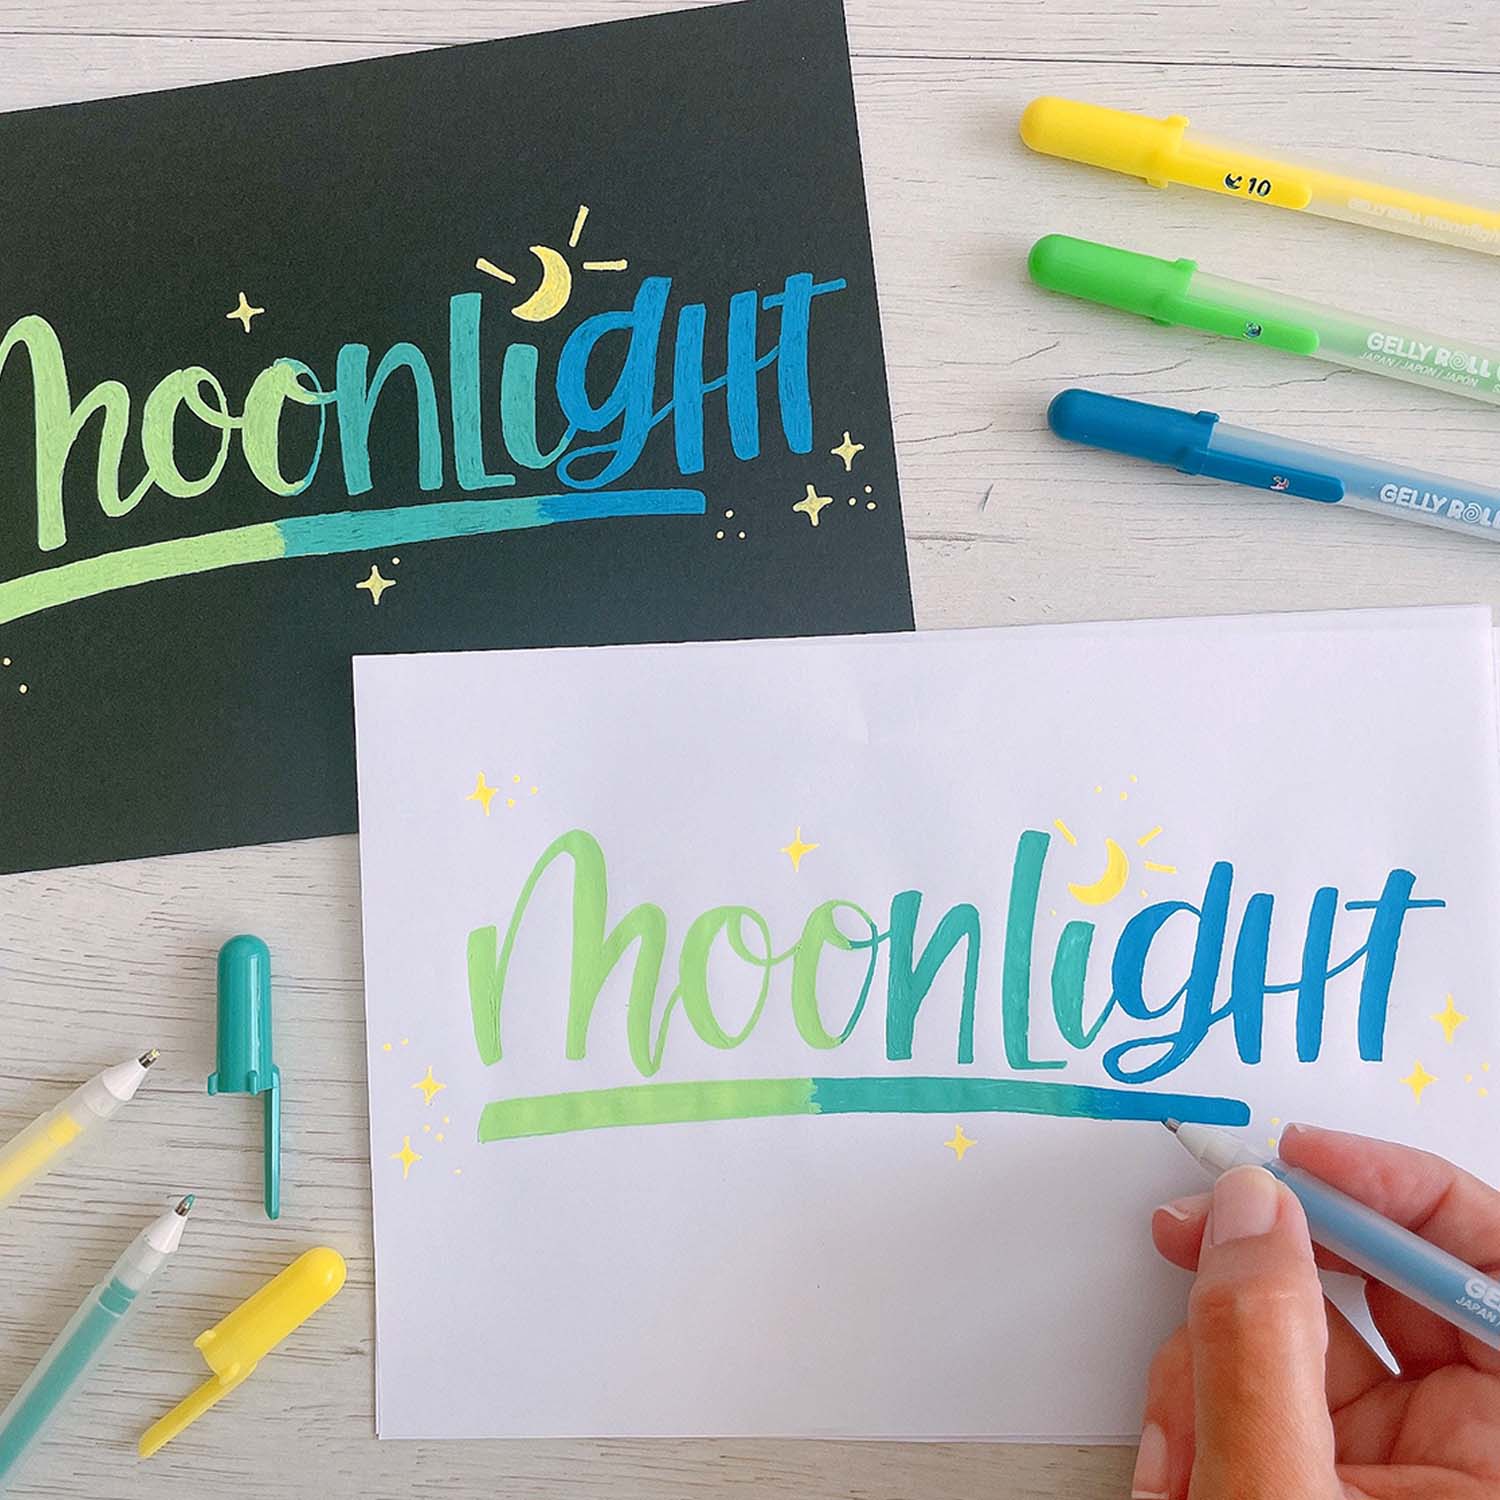 moonlight
10
GELLY ROLL moonlight
GELLY ROLL
JAPAN / JAPON / JAPON
GELLY ROLL
moonlight
JAPAN